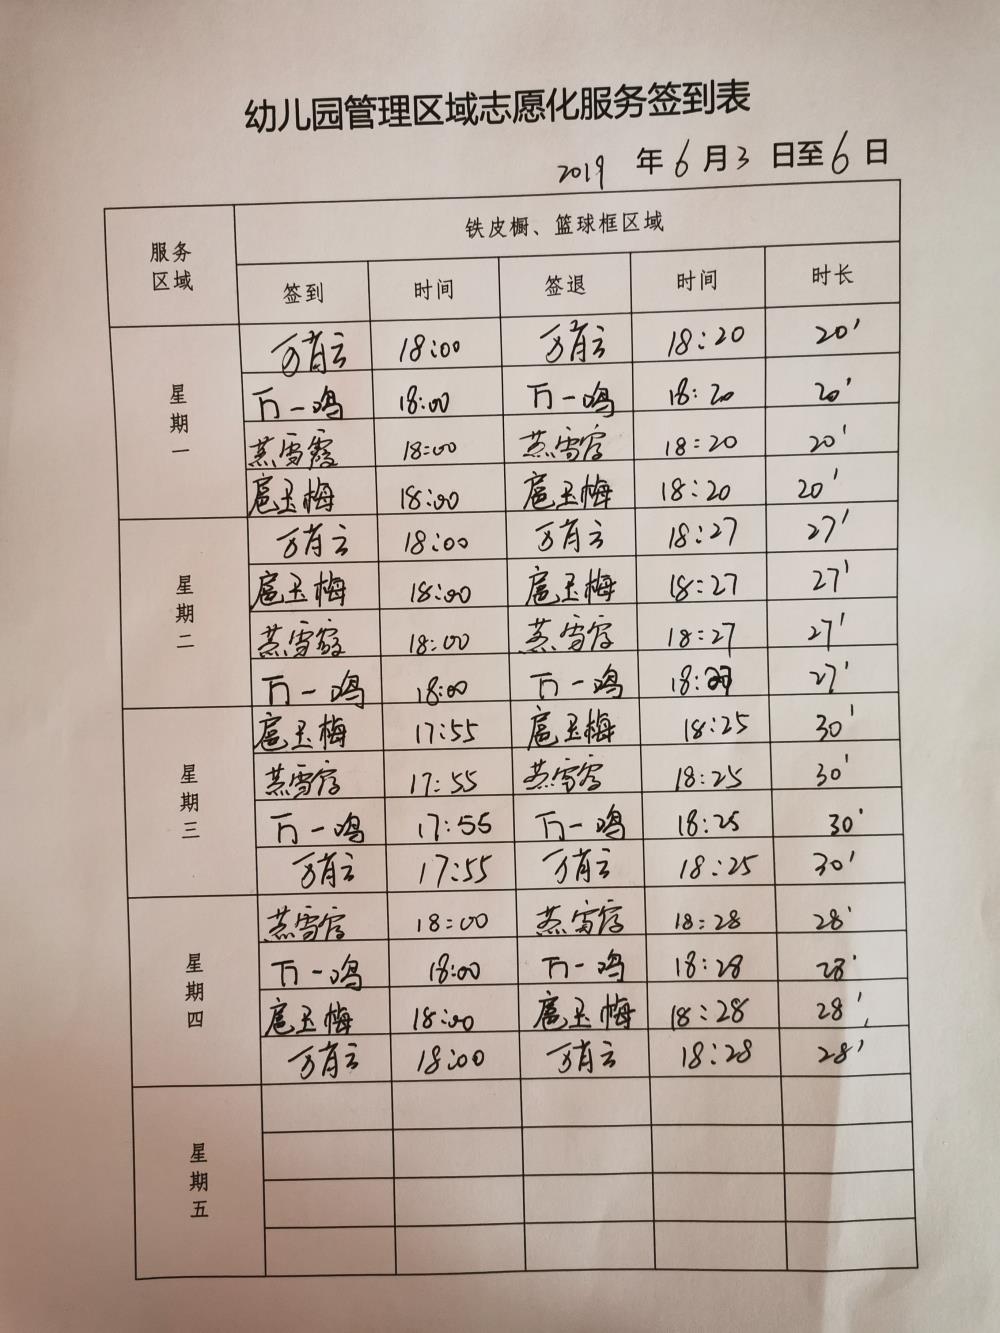 幼儿园管理区域志愿化服务签到表
2019 年 6 月 3 日至 6 日
服务区域 铁皮橱、篮球框区域
签到 时间 签退 时间 时长
星期一
万肖云 18:00 万肖云 18:20 20'
万一鸣 18:00 万一鸣 18:20 20'
燕雪霞 18:00 燕雪霞 18:20 20'
扈玉梅 18:00 扈玉梅 18:20 20'
星期二
万肖云 18:00 万肖云 18:27 27'
扈玉梅 18:00 扈玉梅 18:27 27'
燕雪霞 18:00 燕雪霞 18:27 27'
万一鸣 18:00 万一鸣 18:27 27'
星期三
扈玉梅 17:55 扈玉梅 18:25 30'
燕雪霞 17:55 燕雪霞 18:25 30'
万一鸣 17:55 万一鸣 18:25 30'
万肖云 17:55 万肖云 18:25 30'
星期四
燕雪霞 18:00 燕雪霞 18:28 28'
万一鸣 18:00 万一鸣 18:28 28'
扈玉梅 18:00 扈玉梅 18:28 28'
万肖云 18:00 万肖云 18:28 28'
星期五